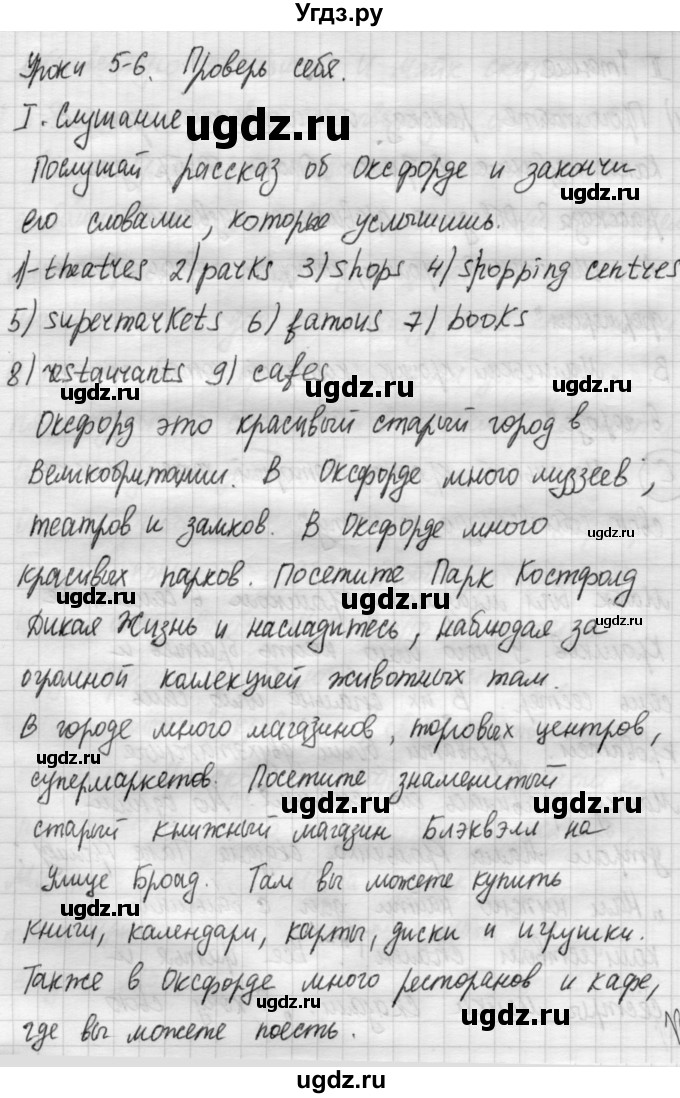 Угдз.ру
Уроки 5-6. Проверь себя.
I. Слушание
ugdz.ru
Послушай рассказ об Оксфорде и закончи
ugdz.ru
его словами, которые услышишь.
1)-theatres 2) parks 3) shops 4) shopping centres
5) supermarkets 6) famous 7) books
8) restaurants 9) cafes
ugdz.ru ugdz.ru
Оксфорд это красивый старый город в
Великобритании. В Оксфорде много муззеев,
театров и замков. В Оксфорде много
ugdz.ru
красивых парков. Посетите Парк Костфолд
ugdz.ru ugdz.ru
Дикая Жизнь и насладитесь, наблюдая за
ugdz.ru
огромной коллекцией животных там.
В городе много магазинов, торговых центров,
ugdz.ru
супермаркетов. Посетите знаменитый
ugdz.ru ugdz.ru
старый книжный магазин Блэквэлл на
Улице Броад. Там вы можете купить
ugdz.ru
книги, календари, карты, диски и игрушки.
Также в Оксфорде много ресторанов и кафе,
ugdz.ru ugdz.ru
где вы можете поесть.
ugdz.ru